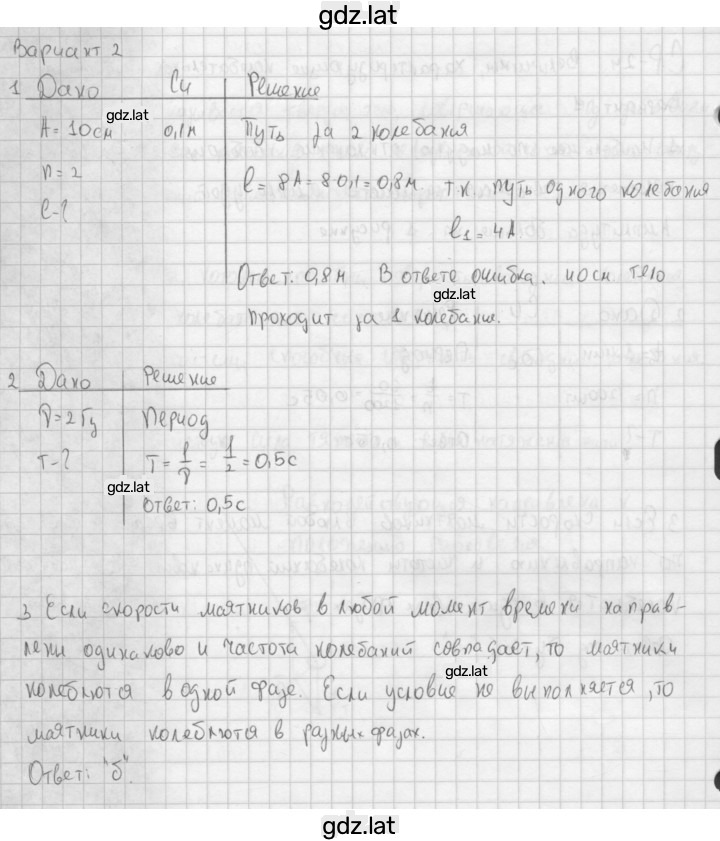 gdz.lat
Вариант 2
1 Дано Си Решение
gdz.lat
A = 10см 0,1м Путь за 2 колебания
n = 2
l = 8A = 8·0,1 = 0,8м т.к путь одного колебания
l-?
l₁ = 4A
Ответ: 0,8м В ответе ошибка. 40см тело
gdz.lat
проходит за 1 колебание.
2 Дано Решение
ν = 2Гц Период
T-? T = 1/ν = 1/2 = 0,5с
gdz.lat
Ответ: 0,5с
3 Если скорости маятников в любой момент времени направ-
лены одинаково и частота колебаний совпадает, то маятники
gdz.lat
колеблются в одной фазе. Если условие не выполняется, то
маятники колеблются в разных фазах.
Ответ: "б".
gdz.lat